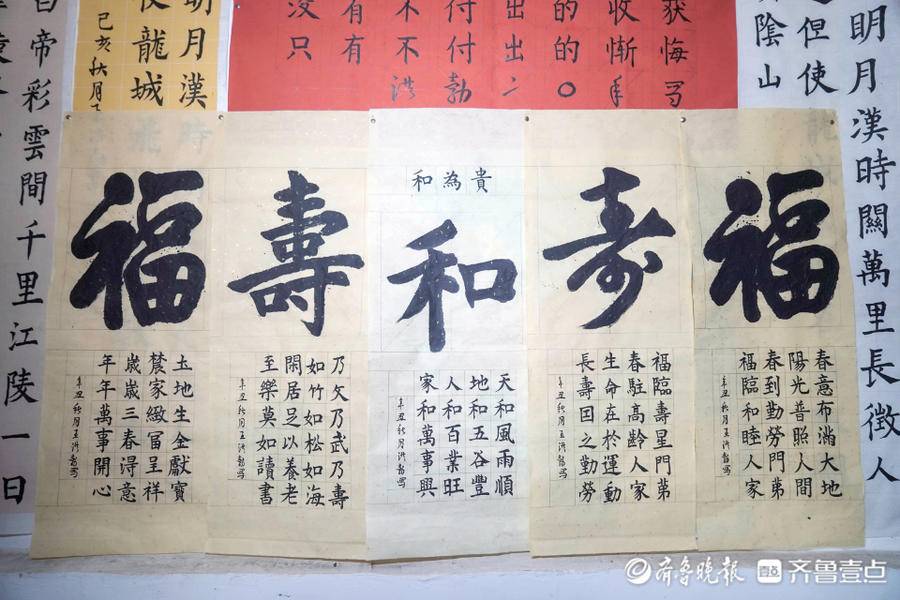 明月漢時關萬里長徵人
但使
陰山
获悔写
收惭手
的的〇
出出二
付付勃
不不洪
有有
没只
明月漢時
使龍城飛
己亥秋月
帝彩雲間千里江陵一日
福
春意布滿大地
陽光普照人間
春到勤勞門第
福臨和睦人家
辛丑秋月王洪龍写
寿
福臨壽星門第
春駐高齡人家
生命在於運動
長壽因之勤勞
辛丑秋月王洪龍写
和為貴
和
天和風雨順
地和五谷豐
人和百業旺
家和萬事興
辛丑秋月王洪龍写
壽
乃文乃武乃壽
如竹如松如海
閑居足以養老
至樂莫如讀書
辛丑秋月王洪龍写
福
土地生金獻寶
農家緻富呈祥
歲歲三春淂意
年年萬事開心
辛丑秋月王洪龍写
齐鲁晚报 齐鲁壹点